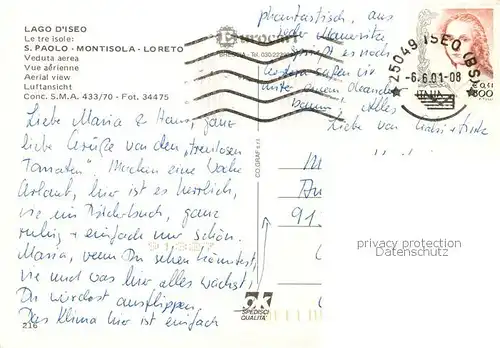 LAGO D'ISEO
Le tre isole:
S. PAOLO - MONTISOLA - LORETO
Veduta aerea
Vue aérienne
Aerial view
Luftansicht
Conc. S.M.A. 433/70 - Fot. 34475
Liebe Maria & Hans, ganz
liebe Grüße von den "treulosen
Tomaten". Machen eine Woche
Urlaub, hier ist es herrlich,
wie im Bilderbuch, ganz
ruhig + einfach nur schön.
Maria, wenn Du sehen könntest,
wie und was hier alles wächst,
Du würdest ausflippen.
Das Klima hier ist einfach
216
phantastisch, aus
jeder
es noch
unter einem Oleander
baum, Alles
Liebe von
Eurocart
25049 ISEO (BS)
-6.6.01-08
ITALIA
800
CO.GRAF s.r.l.
91
ok
SPEDISCI
QUALITA'
privacy protection
Datenschutz